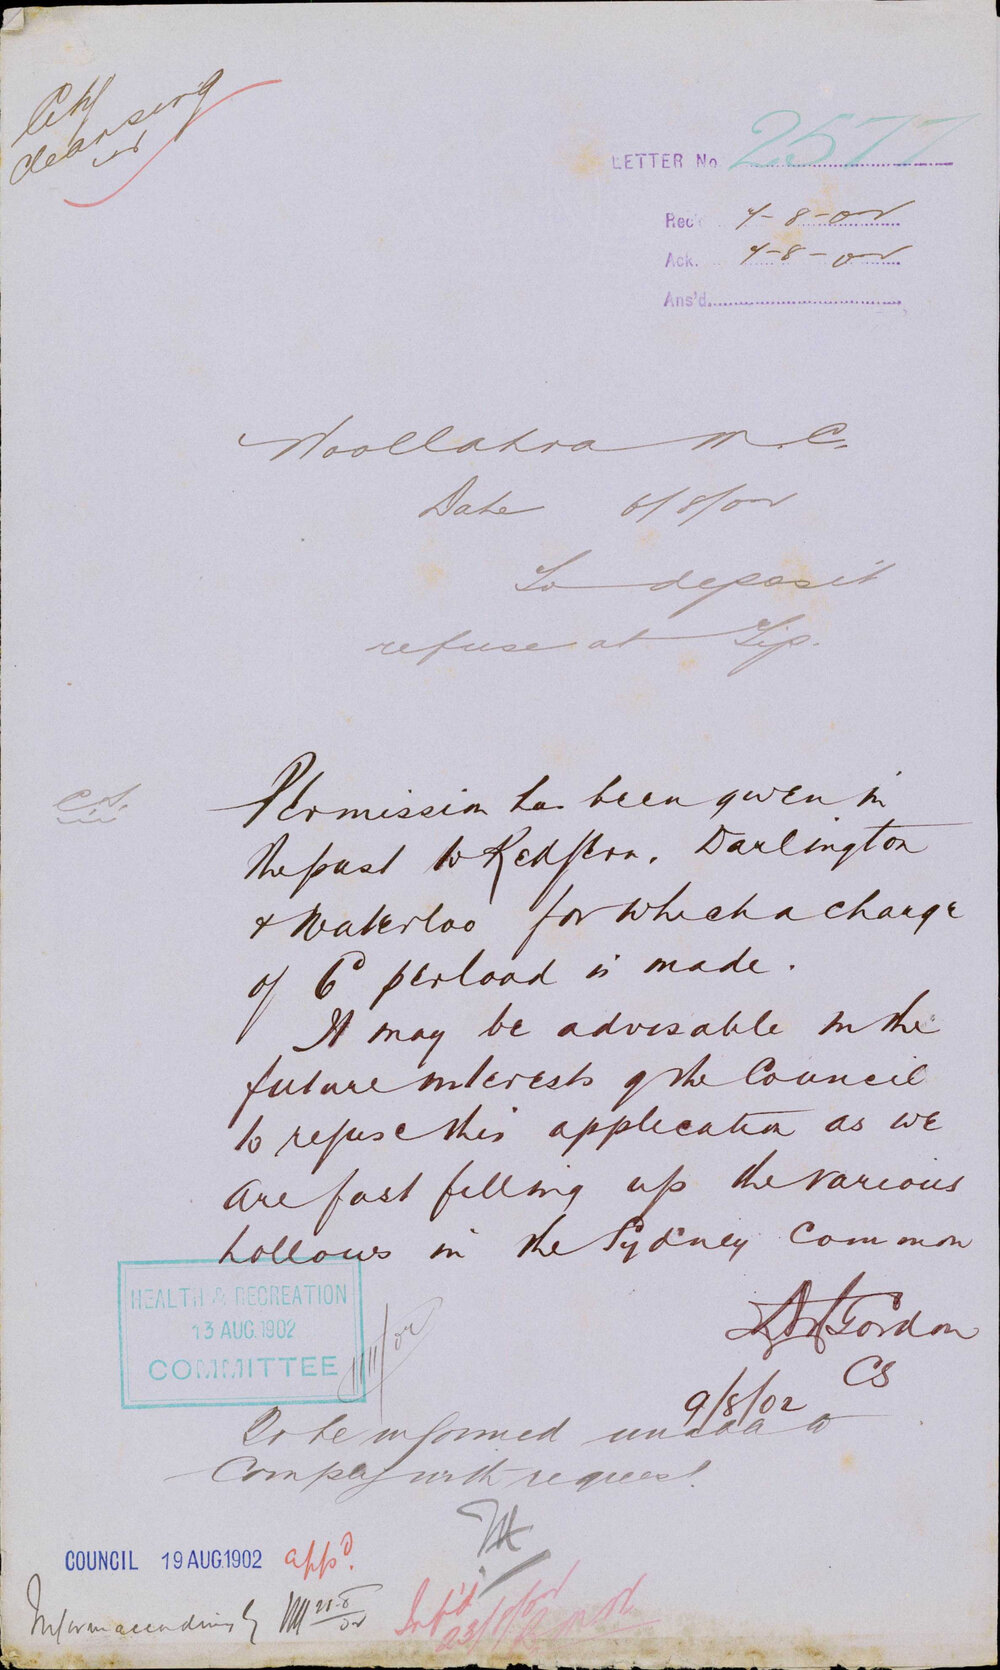 City
cleansing
LETTER No 2577
Rec'd 7-8-02
Ack. 7-8-02
Ans'd.
Woollahra M. C.
Date 6/8/02
To deposit
refuse at Tip.
C.S.
Permission has been given in
the past to Redfern, Darlington
& Waterloo for which a charge
of 6d per load is made.
It may be advisable in the
future interests of the Council
to refuse this application as we
are fast filling up the various
hollows in the Sydney Common
Gordon
CS
9/8/02
HEALTH & RECREATION
13 AUG. 1902
COMMITTEE
To be informed unable to
Comply with request.
COUNCIL 19 AUG. 1902 appd.
Inform accordingly 21-8/02
Inf'd